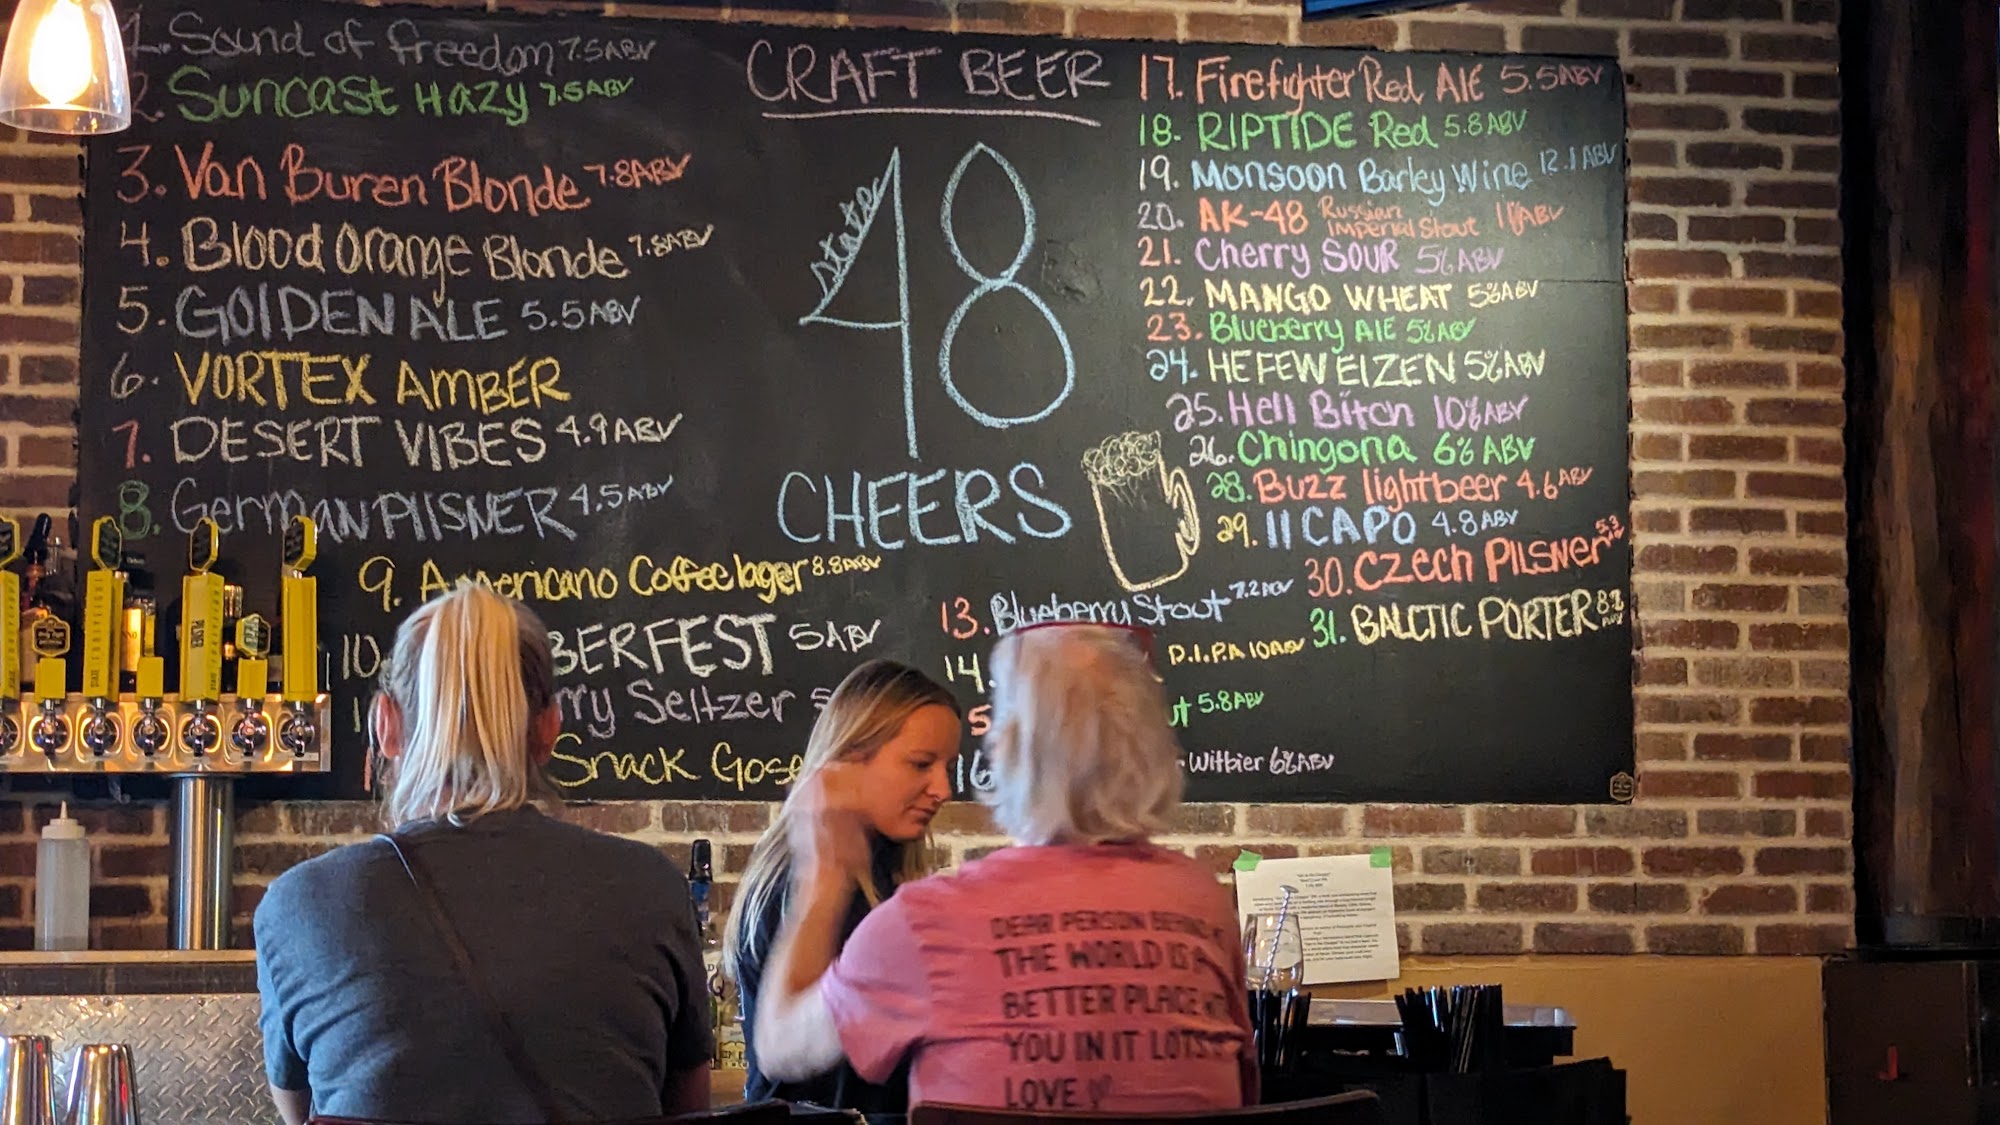 1. Sound of freedom 7.5ABV
2. Suncast Hazy 7.5ABV
3. Van Buren Blonde 7.8ABV
4. Blood Orange Blonde 7.8ABV
5. GOLDEN ALE 5.5ABV
6. VORTEX AMBER
7. DESERT VIBES 4.9ABV
8. German PILSNER 4.5ABV
9. Americano Coffee lager 8.8ABV
10. BERFEST 5ABV
rry Seltzer
Snack Gose
CRAFT BEER
state
48
CHEERS
13. Blueberry Stout 7.2ABV
14. D.I.P.A 10ABV
5.8ABV
16 Witbier 6%ABV
17. Firefighter Red ALE 5.5ABV
18. RIPTIDE Red 5.8ABV
19. Monsoon Barley Wine 12.1ABV
20. AK-48 Russian Imperial Stout ABV
21. Cherry SOUR 5%ABV
22. MANGO WHEAT 5%ABV
23. Blueberry AlE 5%ABV
24. HEFEWEIZEN 5%ABV
25. Hell Bitch 10%ABV
26. Chingona 6%ABV
28. Buzz lightbeer 4.6ABV
29. 11 CAPO 4.8ABV
30. Czech PILSNER 5.3
31. BALCTIC PORTER 8%
PILSNER
DEAR PERSON BEHIND
THE WORLD IS A
BETTER PLACE
YOU IN IT LOTS
LOVE